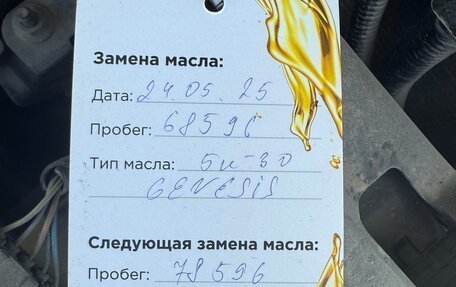 Замена масла:
Дата: 24.05.25
Пробег: 68596
Тип масла: 5w-30
GENESIS
Следующая замена масла:
Пробег: 78596